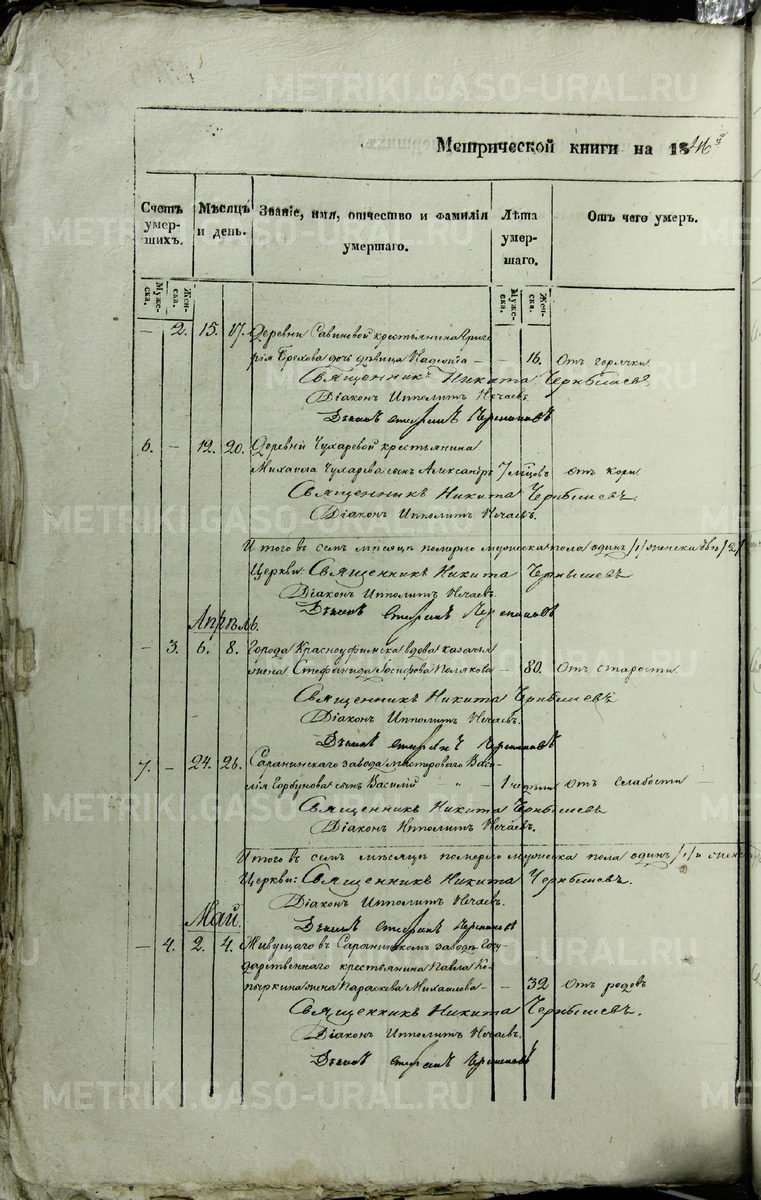 METRIKI.GASO-URAL.RU
Метрической книги на 1846й
Счетъ умер-шихъ.
Мѣсяцъ и день.
Званіе, имя, отчество и фамилія умершаго.
Лѣта умер-шаго.
Отъ чего умеръ.
Муже-ска.
Жен-ска.
Муже-ска.
Жен-ска.
— 2. 15. 17. Деревни Савиновой крестьянина Григо-
рія дочь дѣвица — 16. Отъ горячки
Священникъ Никита Чернышевъ
Діаконъ Ипполитъ Нечаевъ.
6. — 12. 20. Деревни Чухаревой крестьянина
Михаила Чухарева сынъ Александръ 7 мѣсцовъ отъ кори
Священникъ Никита Чернышевъ
Діаконъ Ипполитъ Нечаевъ.
Итого въ семъ мѣсяцѣ померло мужеска пола одинъ /1/ женска двѣ /2/
Церкви: Священникъ Никита Чернышевъ
Діаконъ Ипполитъ Нечаевъ.
Апрѣль.
— 3. 6. 8. Города Красноуфимска вдова казачья
жена Стефанида Іосифова Полякова — 80. Отъ старости
Священникъ Никита Чернышевъ
Діаконъ Ипполитъ Нечаевъ.
7. — 24. 26. Саранинскаго завода мастероваго Васи-
лія Горбунова сынъ Василій — 1 недѣли Отъ слабости —
Священникъ Никита Чернышевъ
Діаконъ Ипполитъ Нечаевъ.
Итого въ семъ мѣсяцѣ померло мужеска пола одинъ /1/ и женск
Церкви: Священникъ Никита Чернышевъ.
Діаконъ Ипполитъ Нечаевъ.
Май.
— 4. 2. 4. Живущаго въ Саранинскомъ заводѣ Госу-
дарственнаго крестьянина Павла Ко-
пыркина жена Параскева Михаилова — 32 Отъ родовъ
Священникъ Никита Чернышевъ.
Діаконъ Ипполитъ Нечаевъ.